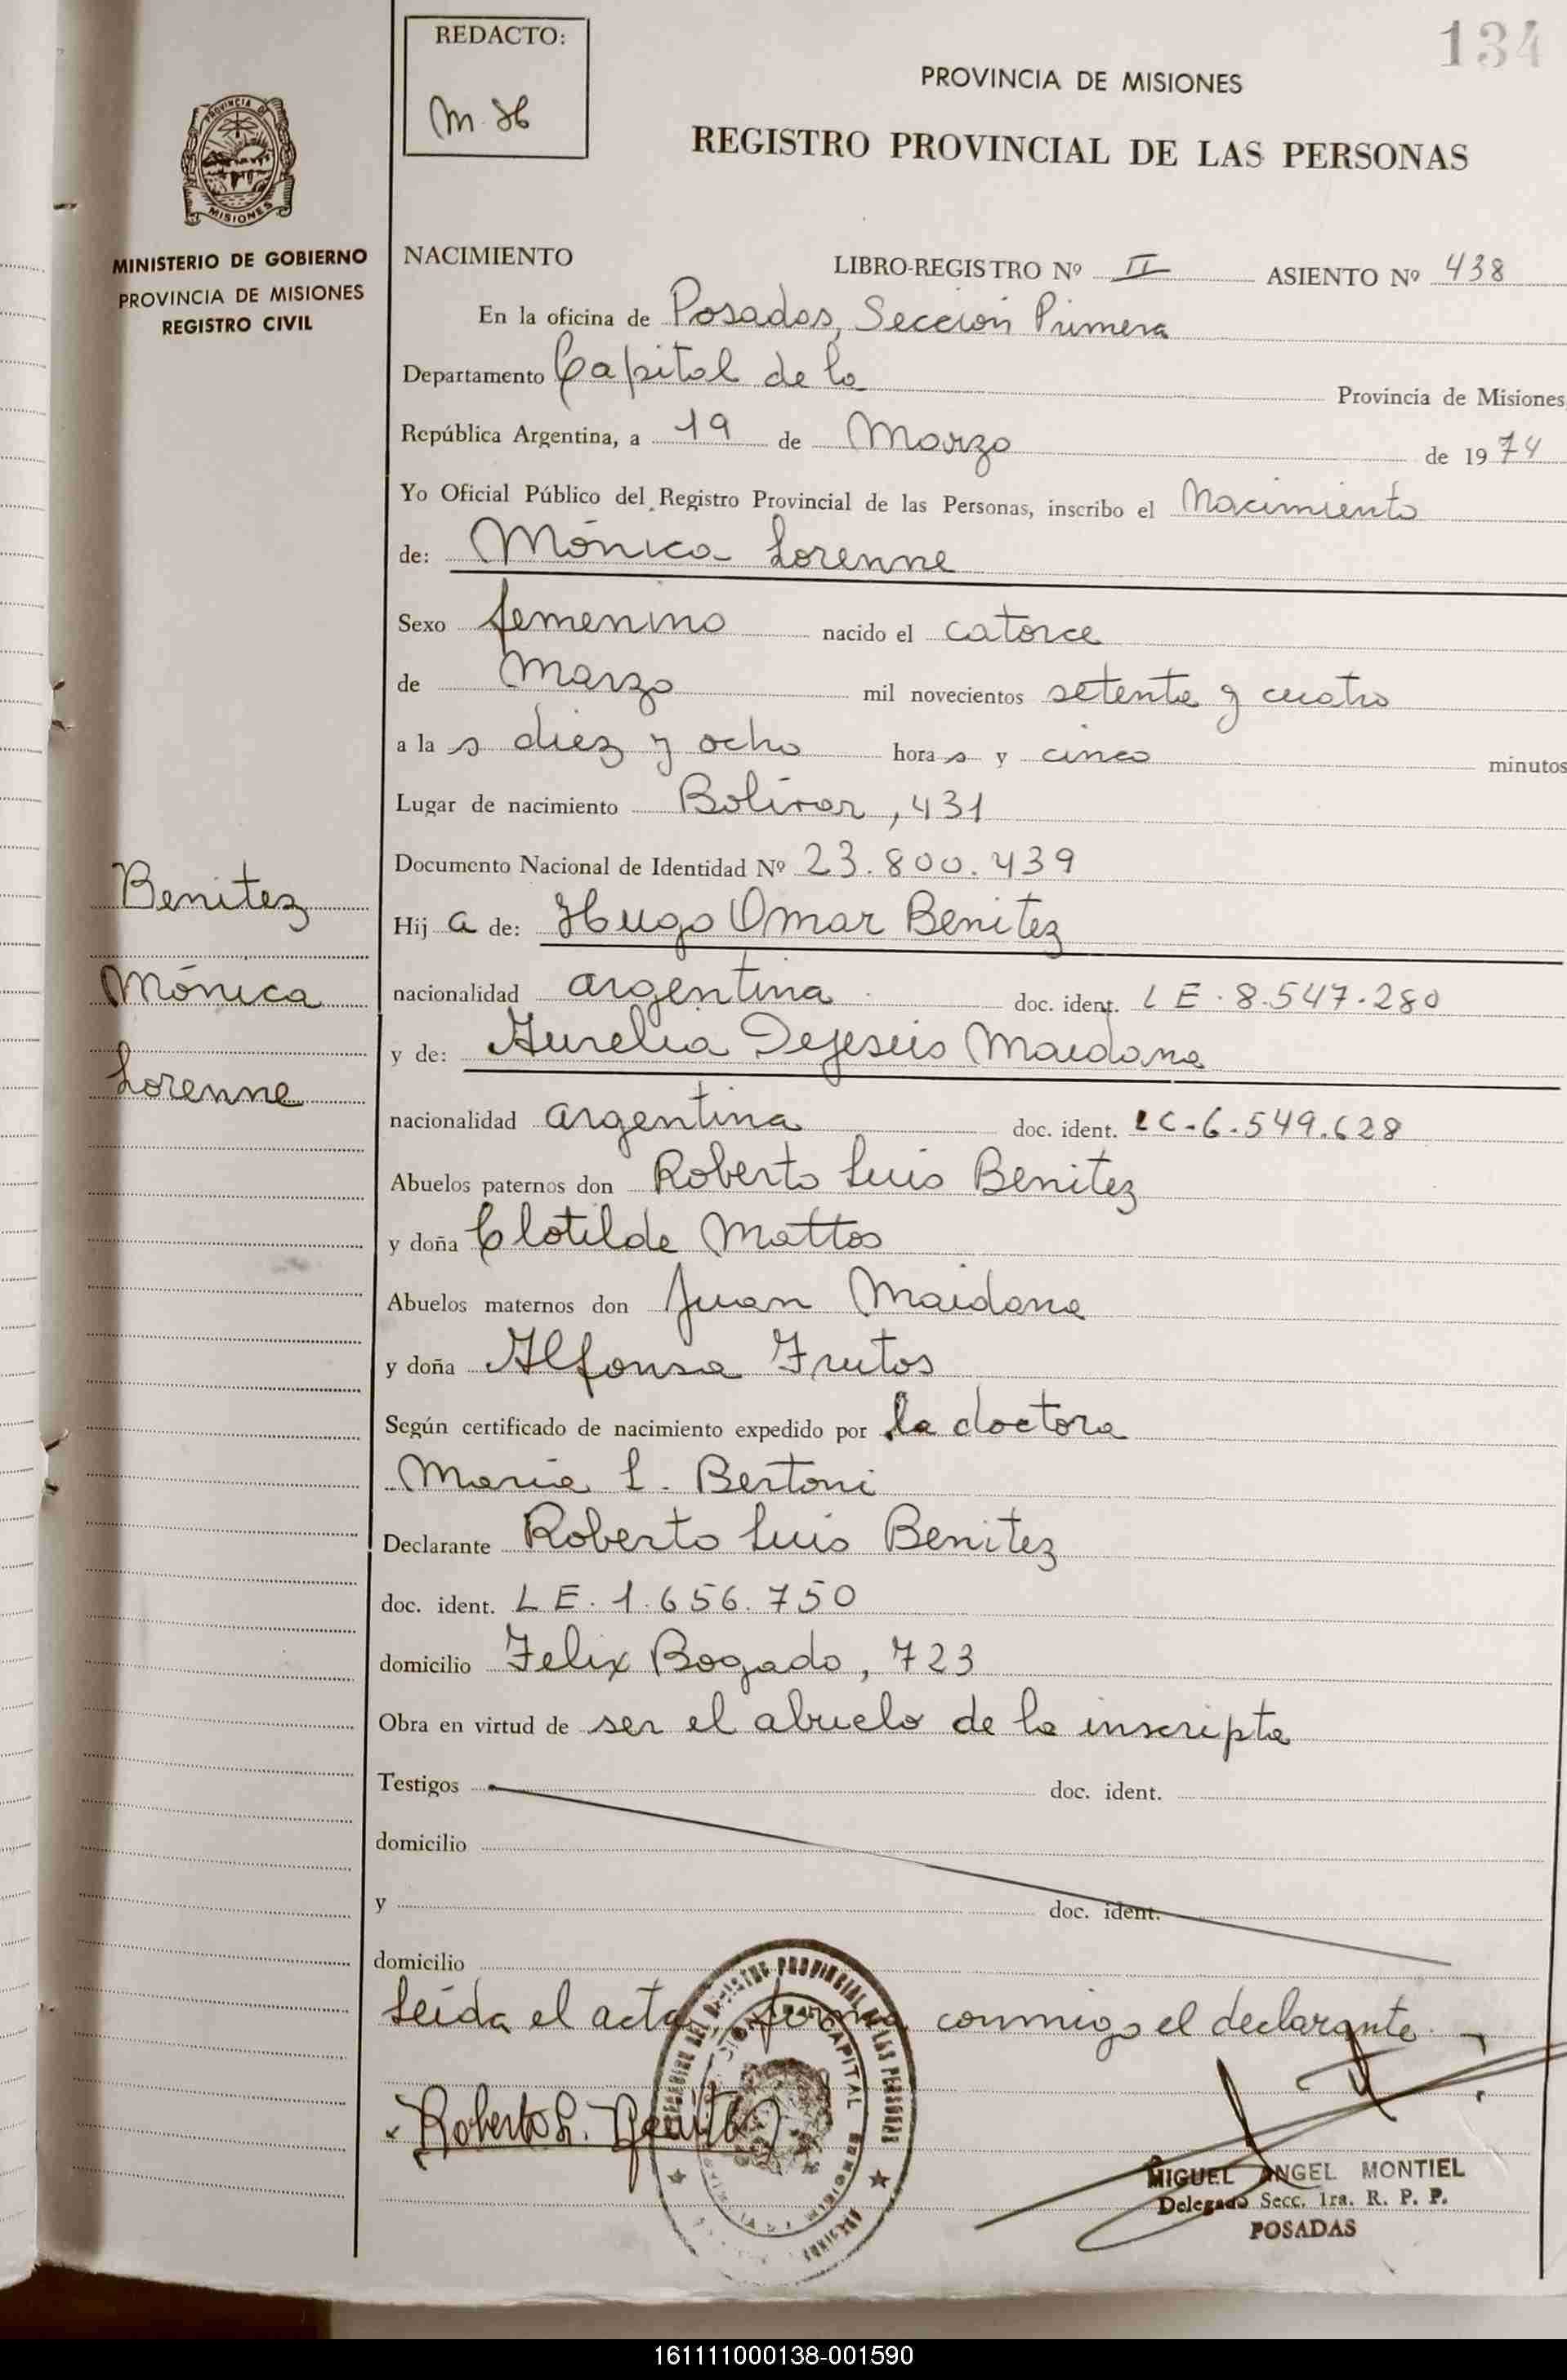 134
REDACTO:
M. H
PROVINCIA DE MISIONES
REGISTRO PROVINCIAL DE LAS PERSONAS
PROVINCIA DE
MISIONES
MINISTERIO DE GOBIERNO
PROVINCIA DE MISIONES
REGISTRO CIVIL
NACIMIENTO
LIBRO-REGISTRO Nº II ASIENTO Nº 438
En la oficina de Posadas, Sección Primera
Departamento Capital de la Provincia de Misiones
República Argentina, a 19 de Marzo de 1974
Yo Oficial Público del Registro Provincial de las Personas, inscribo el Nacimiento
de: Mónica Lorenne
Sexo femenino nacido el catorce
de Marzo mil novecientos setenta y cuatro
a las diez y ocho horas y cinco minutos
Lugar de nacimiento Bolívar, 431
Documento Nacional de Identidad Nº 23.800.439
Benitez
Mónica
Lorenne
Hija de: Hugo Omar Benitez
nacionalidad argentina doc. ident. LE. 8.547.280
y de: Aurelia Dejesús Maidana
nacionalidad argentina doc. ident. LC-6.549.628
Abuelos paternos don Roberto Luis Benitez
y doña Clotilde Mattos
Abuelos maternos don Juan Maidana
y doña Alfonsa Frutos
Según certificado de nacimiento expedido por la doctora
María L. Bertoni
Declarante Roberto Luis Benitez
doc. ident. LE. 1.656.750
domicilio Felix Bogado, 723
Obra en virtud de ser el abuelo de la inscripta
Testigos doc. ident.
domicilio
y doc. ident.
domicilio
Leída el acta, firma conmigo el declarante.
Roberto L. Benitez
PROVINCIAL DE LAS PERSONAS
CAPITAL
MIGUEL ANGEL MONTIEL
Delegado Secc. 1ra. R. P. P.
POSADAS
161111000138-001590